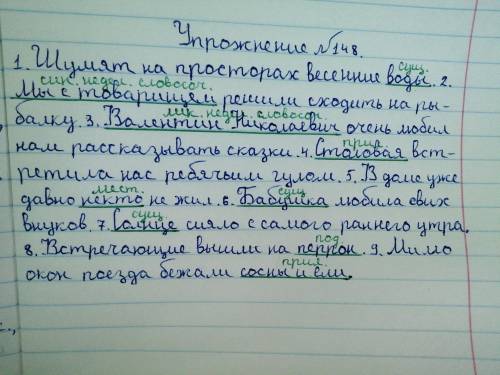 Упрожнение №148.
1. Шумят на просторах весенние воды. 2.
сущ.
син. недел. словосоч.
Мы с товарищем решили сходить на ры-
балку. 3. Валентин Николаевич очень любил
лик. недел. словосоч.
нам рассказывать сказки. 4. Столовая вст-
прил.
ретила нас ребячьим гулом. 5. В доме уже
давно некто не жил. 6. Бабушка любила свих
мест. сущ.
внуков. 7. Солнце сияло с самого раннего утра.
сущ.
8. Встречающие вышли на перрон. 9. Мимо
под
окон поезда бежали сосны и ели.
прил.